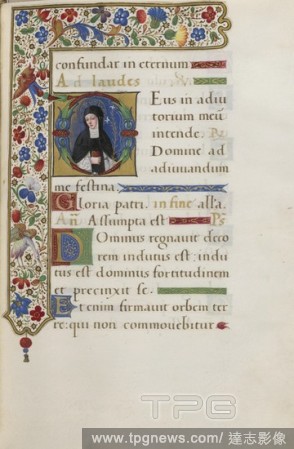 confundar in eternum
Ad laudes
Deus in adiu
torium meū
intende. R
Domine ad
adiuuandum
me festina.
Gloria patri. in fine alla.
An Assumpta est Ps
Dominus regnauit deco
rem indutus est: indu
tus est dominus fortitudinem
et precinxit se.
Et enim firmauit orbem ter
re: qui non commouebitur
TPG
www.tpgnews.com / 達志影像